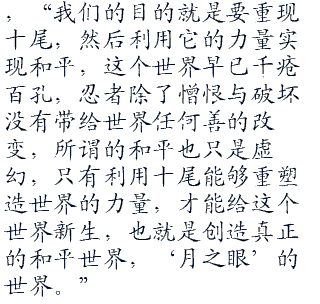 ，“我们的目的就是要重现
十尾，然后利用它的力量实
现和平，这个世界早已千疮
百孔，忍者除了憎恨与破坏
没有带给世界任何善的改
变，所谓的和平也只是虚
幻，只有利用十尾能够重塑
造世界的力量，才能给这个
世界新生，也就是创造真正
的和平世界，‘月之眼’的
世界。”